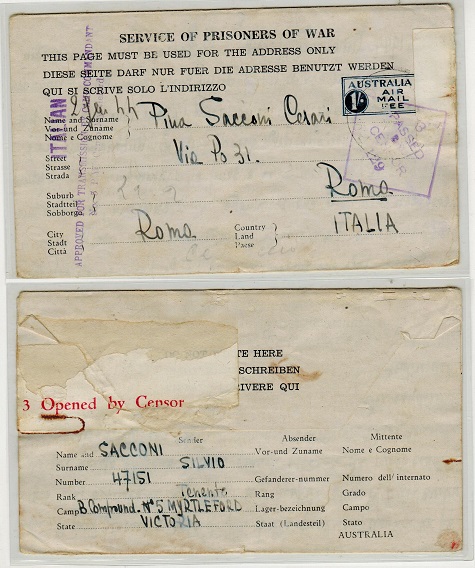 SERVICE OF PRISONERS OF WAR
THIS PAGE MUST BE USED FOR THE ADDRESS ONLY
DIESE SEITE DARF NUR FUER DIE ADRESSE BENUTZT WERDEN
QUI SI SCRIVE SOLO L'INDIRIZZO
AUSTRALIA
AIR
MAIL
FEE
1/-
PASSED
CENSOR
229
ITALIAN
APPROVED FOR TRANSMISSION
COMMANDANT
Name and Surname
Vor-und Zuname
Nome e Cognome
Pina Sacconi Cesari
Street
Strasse
Strada
Via Po 31.
Suburb
Stadtteil
Sobborgo
Roma
City
Stadt
Città
Roma
Country
Land
Paese
ITALIA
TE HERE
SCHREIBEN
RIVERE QUI
3 Opened by Censor
Sender
Absender
Mittente
Name and Surname
SACCONI SILVIO
Vor-und Zuname
Nome e Cognome
Number
47151
Gefangenen-nummer
Numero dell' internato
Rank
Tenente
Rang
Grado
Camp
B Compound. N°5 MYRTLEFORD
Lager-bezeichnung
Campo
State
VICTORIA
Staat (Landesteil)
Stato
AUSTRALIA